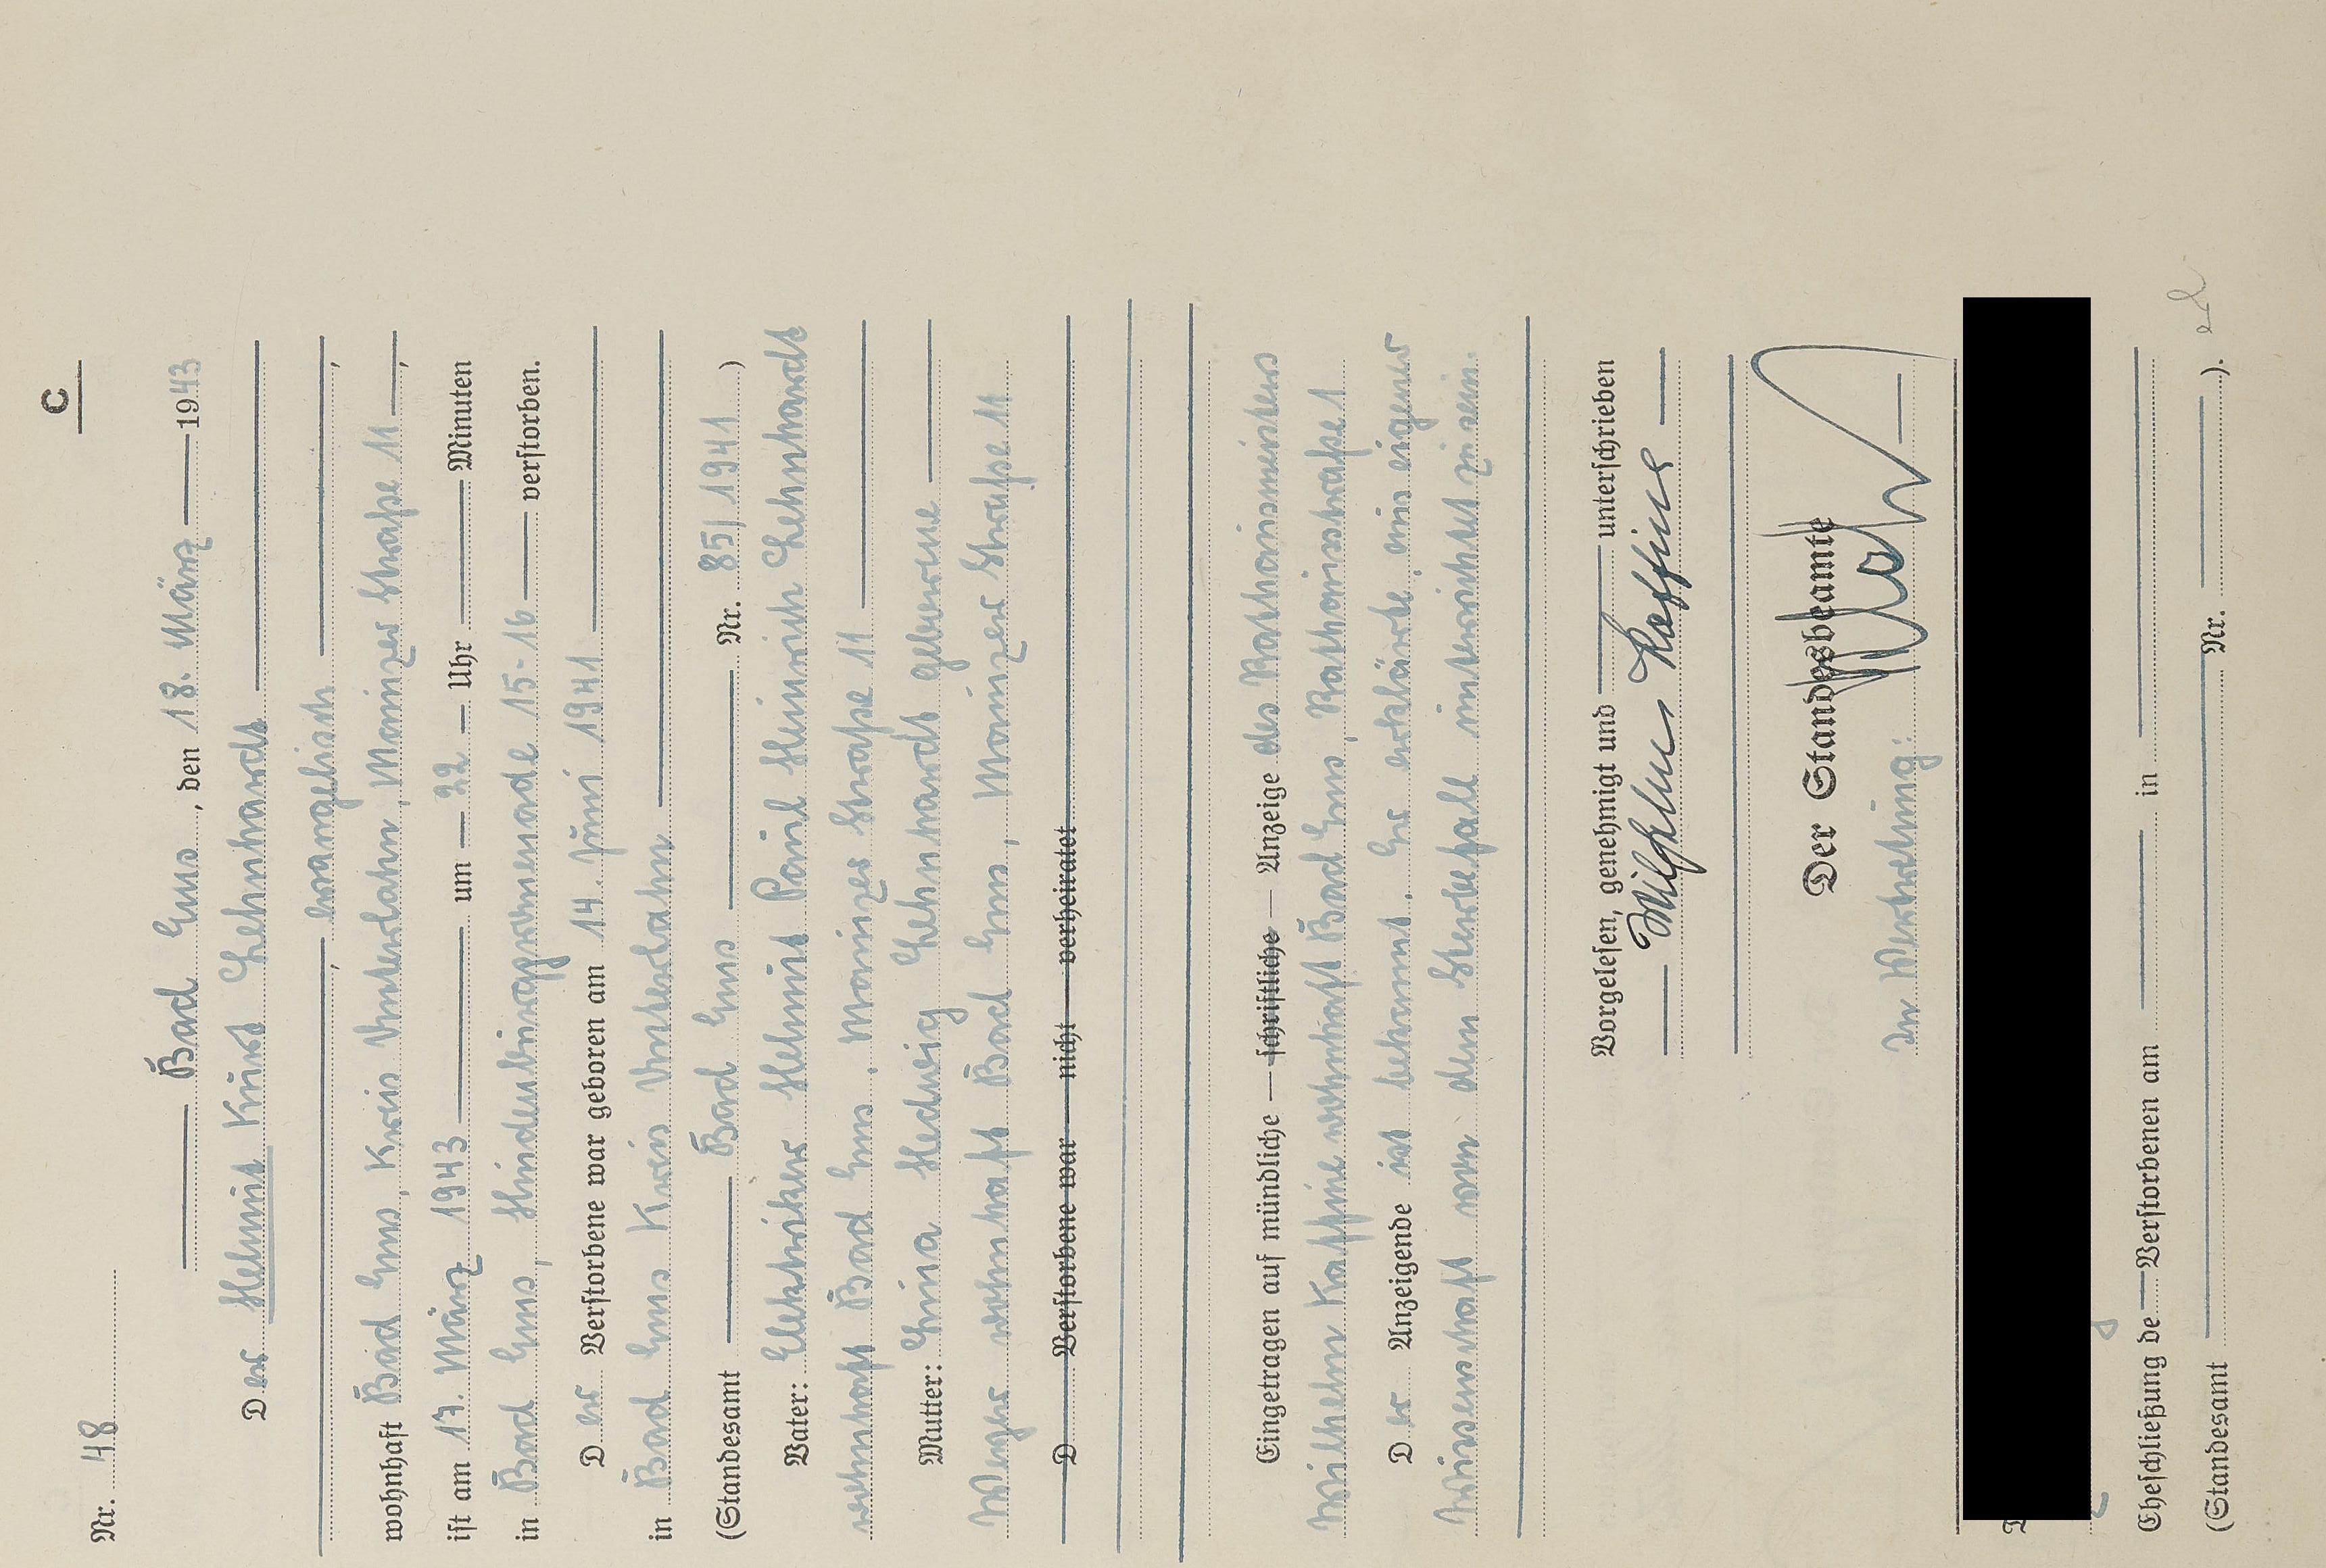 C
Nr. 48
Bad Ems, den 18. März 1943
Der Helmut Knut Lehnhardt
, evangelisch,
wohnhaft Bad Ems, Kreis Unterlahn, Mainzer Straße 11,
ist am 17. März 1943 um 22 Uhr Minuten
in Bad Ems, Hindenburgpromenade 15-16 verstorben.
Der Verstorbene war geboren am 14. Juni 1941
in Bad Ems Kreis Unterlahn
(Standesamt Bad Ems Nr. 85/1941)
Vater: Elektriker Helmut Paul Heinrich Lehnhardt
wohnhaft Bad Ems, Mainzer Straße 11
Mutter: Hedwig Lehnhardt geborene
wohnhaft Bad Ems, Mainzer Straße 11
D Verstorbene war nicht verheiratet
Eingetragen auf mündliche — schriftliche — Anzeige des
Wilhelm wohnhaft Bad Ems,
Der Anzeigende ist bekannt. Er erklärte, aus eigener
Wissenschaft von dem Sterbefall unterrichtet zu sein.
Vorgelesen, genehmigt und unterschrieben
Wilhelm
Der Standesbeamte
In Vertretung:
Eheschließung de Verstorbenen am in
(Standesamt Nr. ).